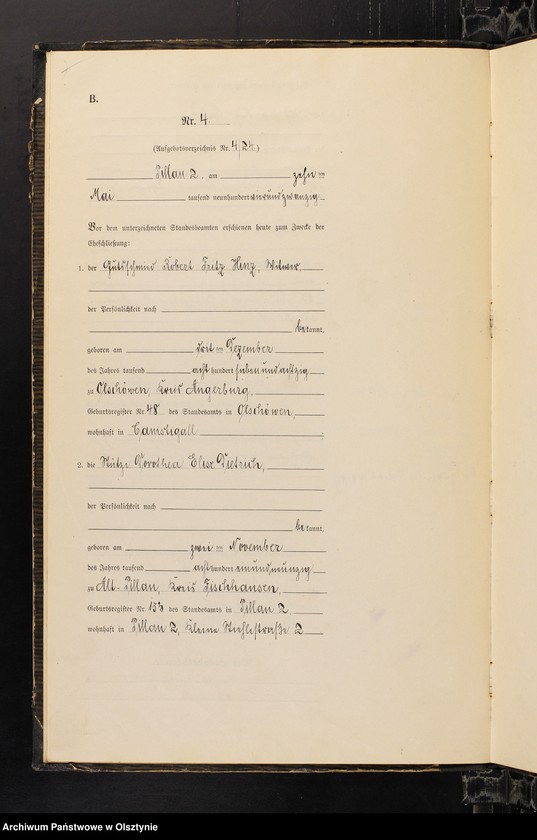 B.
Nr. 4
(Aufgebotsverzeichnis Nr. 4/24.)
Pillau 2, am zehnten
Mai tausend neunhundert vierundzwanzig
Vor dem unterzeichneten Standesbeamten erschienen heute zum Zwecke der
Eheschließung:
1. der Gutsschmied Robert Fritz Hinz, Witwer,
der Persönlichkeit nach
bekannt,
geboren am dritten Dezember
des Jahres tausend acht hundert siebenundachtzig
zu Olschöwen, Kreis Angerburg,
Geburtsregister Nr. 48 des Standesamts in Olschöwen,
wohnhaft in Camstigall
2. die Stütze Dorothea Elise Dietrich,
der Persönlichkeit nach
bekannt,
geboren am zweiten November
des Jahres tausend acht hundert neunzig
zu Alt-Pillau, Kreis Fischhausen,
Geburtsregister Nr. 153 des Standesamts in Pillau 2
wohnhaft in Pillau 2, Kleine Stiehlestraße 2
Archiwum Państwowe w Olsztynie